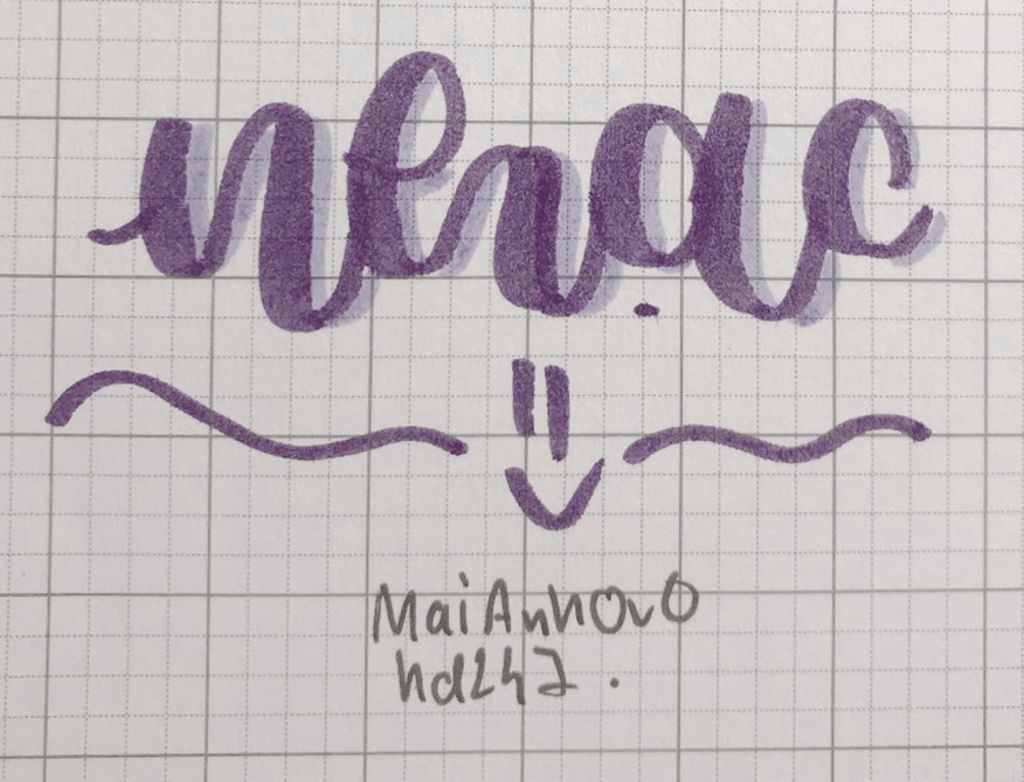 nhạc
MaiAnhOvO
hd247.